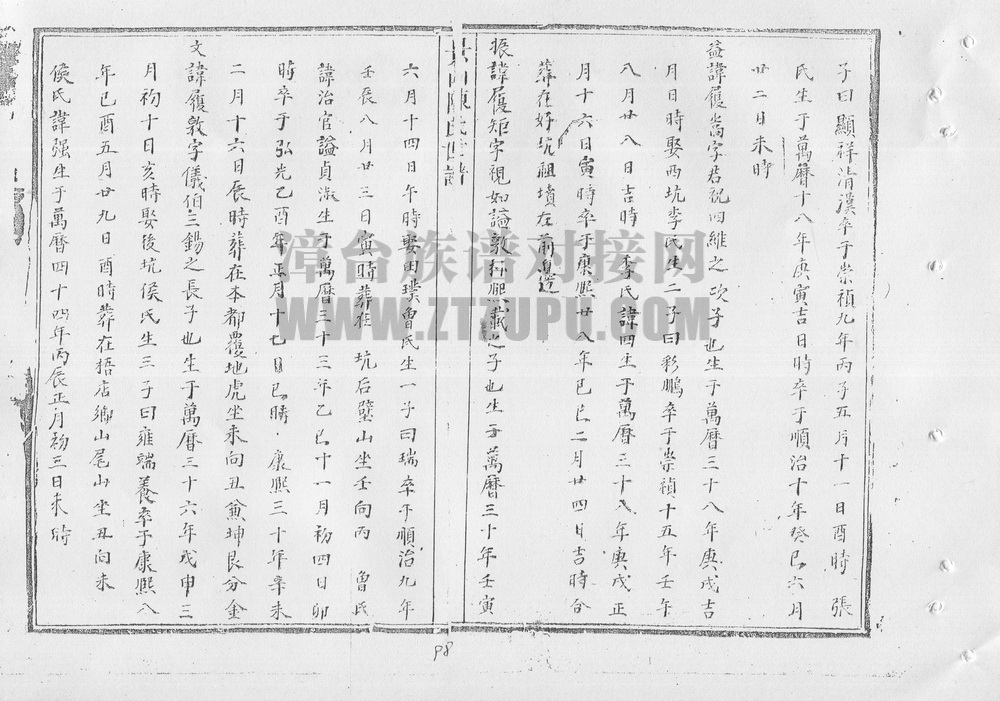 子曰顯祥清漢卒于崇禎九年丙子五月十一日酉時 張
氏生于萬曆十八年庚寅吉日時卒于順治十年癸巳六月
廿二日未時
益諱履嵩字君祝四維之次子也生于萬曆三十八年庚戌吉
月日時娶西坑李氏生二子曰彩鵬卒于崇禎十五年壬午
八月廿八日吉時 李氏諱四生于萬曆三十八年庚戌正
月十六日寅時卒于康熙廿八年己巳二月廿四日吉時合
葬在好坑祖墳左前
振諱履矩字視如謚敦 熙 之子也生于萬曆三十年壬寅
陳氏世譜
六月十四日午時娶田璞魯氏生一子曰瑞卒于順治九年
壬辰八月廿三日寅時葬在 坑后壁山坐壬向丙 魯氏
諱治官謚貞淑生于萬曆三十三年乙巳十一月初四日卯
時卒于弘光乙酉年正月十七日巳時 康熙三十年辛未
二月十六日辰時葬在本都覆地虎坐未向丑兼坤艮分金
文諱履敦字儀伯三錫之長子也生于萬曆三十六年戊申三
月初十日亥時娶後坑侯氏生三子曰雍端養卒于康熙八
年己酉五月廿九日酉時葬在梧店鄉山尾山坐丑向未
侯氏諱强生于萬曆四十四年丙辰正月初三日未時
漳台族谱对接网
WWW.ZTZUPU.COM
98